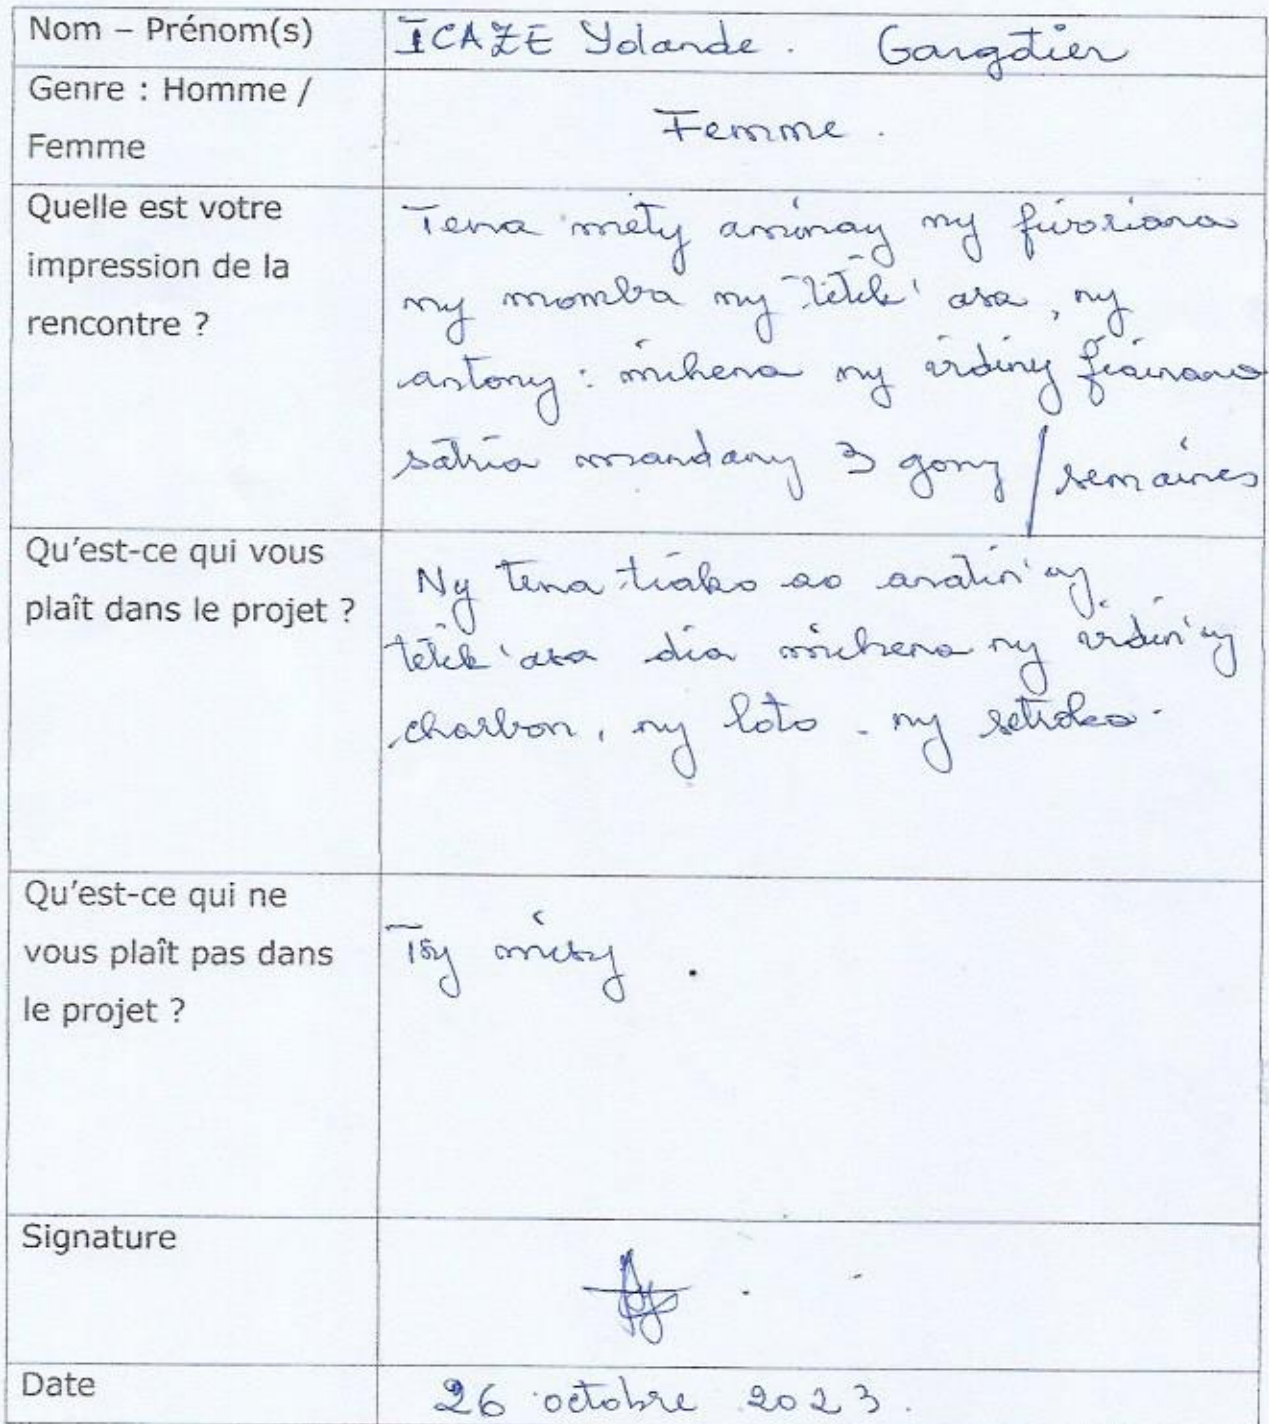 Nom – Prénom(s)
ICAZE Yolande. Gargotier
Genre : Homme /
Femme
Femme.
Quelle est votre
impression de la
rencontre ?
Tena mety aminay ny fivoriana
ny momba ny tetik' asa, ny
antony : mihena ny vidiny fiainana
satria mandany 3 gony / semaines
Qu'est-ce qui vous
plaît dans le projet ?
Ny tena tiako ao anatin'ny
tetik'asa dia mihena ny vidin'ny
charbon, ny loto. ny setroka.
Qu'est-ce qui ne
vous plaît pas dans
le projet ?
Tsy misy.
Signature
Date
26 octobre 2023.